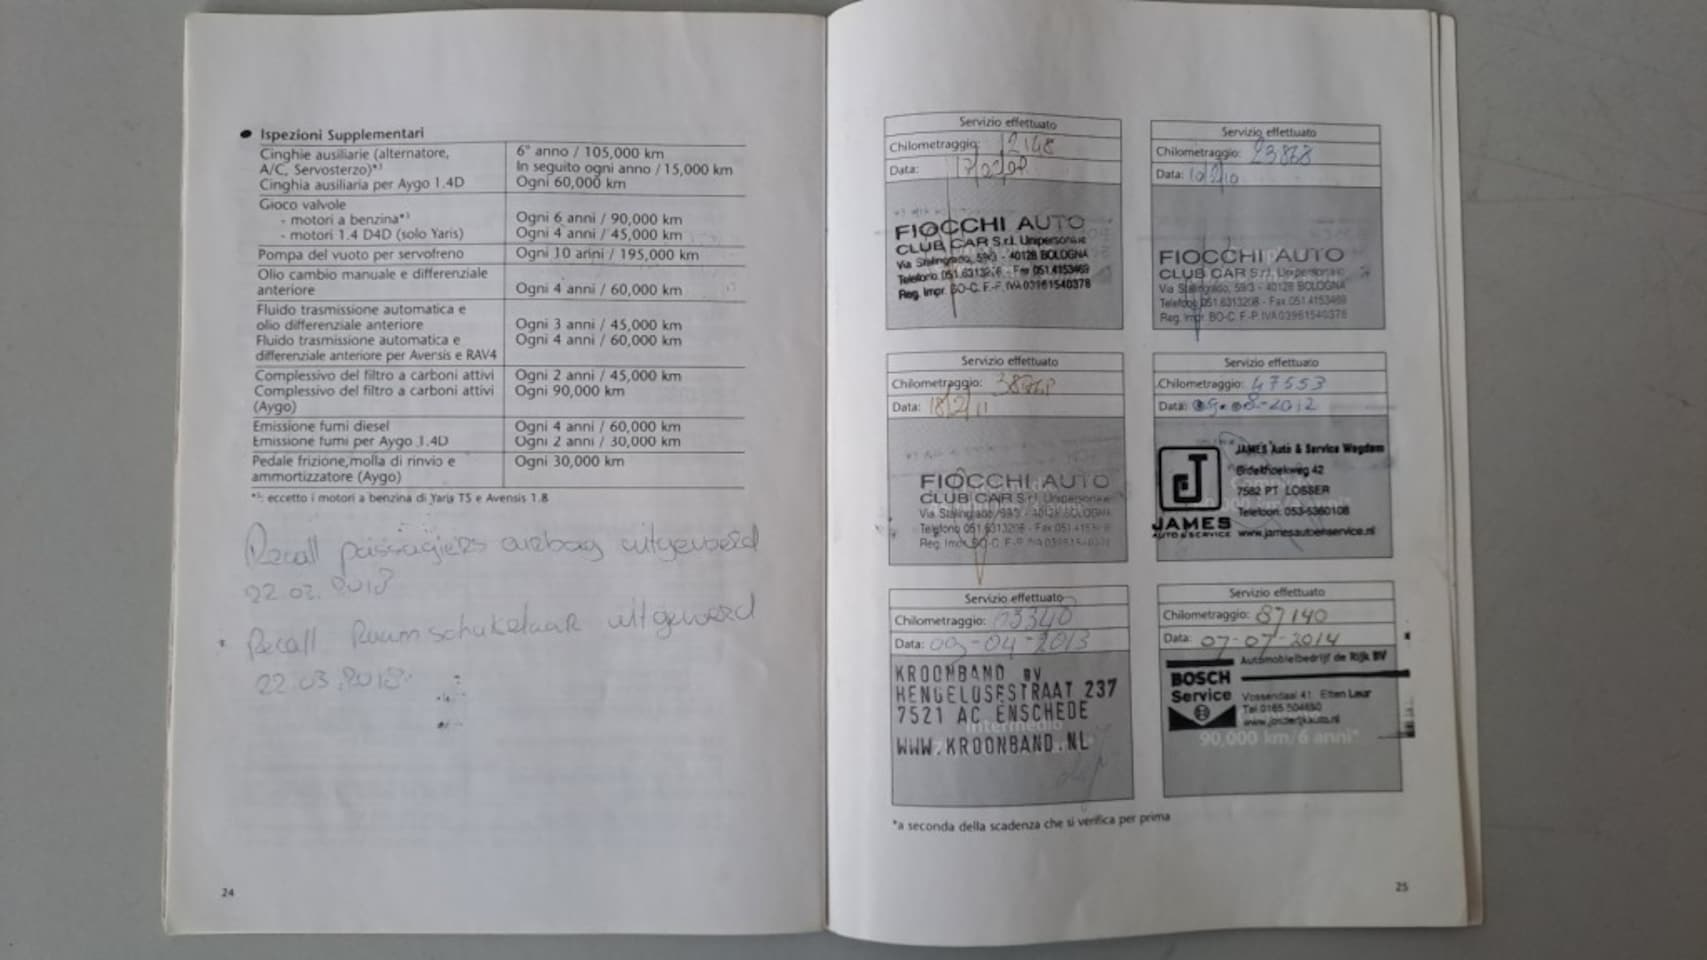 ● Ispezioni Supplementari
Cinghie ausiliarie (alternatore, 6° anno / 105,000 km
A/C, Servosterzo)*³ In seguito ogni anno / 15,000 km
Cinghia ausiliaria per Aygo 1.4D Ogni 60,000 km
Gioco valvole
- motori a benzina*³ Ogni 6 anni / 90,000 km
- motori 1.4 D4D (solo Yaris) Ogni 4 anni / 45,000 km
Pompa del vuoto per servofreno Ogni 10 anni / 195,000 km
Olio cambio manuale e differenziale
anteriore Ogni 4 anni / 60,000 km
Fluido trasmissione automatica e
olio differenziale anteriore Ogni 3 anni / 45,000 km
Fluido trasmissione automatica e Ogni 4 anni / 60,000 km
differenziale anteriore per Aversis e RAV4
Complessivo del filtro a carboni attivi Ogni 2 anni / 45,000 km
Complessivo del filtro a carboni attivi Ogni 90,000 km
(Aygo)
Emissione fumi diesel Ogni 4 anni / 60,000 km
Emissione fumi per Aygo 1.4D Ogni 2 anni / 30,000 km
Pedale frizione,molla di rinvio e Ogni 30,000 km
ammortizzatore (Aygo)
*³: eccetto i motori a benzina di Yaris TS e Avensis 1.8
Recall passagiers airbag uitgevoerd
22.03.2018
* Recall Raamschakelaar uitgevoerd
22.03.2018
24
Servizio effettuato
Chilometraggio: 12148
Data:
FIOCCHI AUTO
CLUB CAR S.r.l. Unipersonale
Via Stalingrado, 59/3 - 40128 BOLOGNA
Telefono 051.6313208 - Fax 051.4153469
Reg. Impr. BO-C. F.-P. IVA 03961540378
Servizio effettuato
Chilometraggio: 23868
Data:
FIOCCHI AUTO
CLUB CAR S.r.l. Unipersonale
Via Stalingrado, 59/3 - 40128 BOLOGNA
Telefono 051.6313208 - Fax 051.4153469
Reg. Impr. BO-C. F.-P. IVA 03961540378
Servizio effettuato
Chilometraggio:
Data: 18/2/11
FIOCCHI AUTO
CLUB CAR S.r.l. Unipersonale
Via Stalingrado, 59/3 - 40128 BOLOGNA
Telefono 051.6313208 - Fax 051.4153469
Reg. Impr. BO-C. F.-P. IVA 03961540378
Servizio effettuato
Chilometraggio: 47553
Data: 09-08-2012
JAMES Auto & Service Wegdam
42
7582 PT LOSSER
Telefoon: 053-5360108
JAMES
AUTO & SERVICE www.jamesautoenservice.nl
Servizio effettuato
Chilometraggio:
Data: 09-04-2013
KROONBAND BV
HENGELOSESTRAAT 237
7521 AC ENSCHEDE
Intermedio
WWW.KROONBAND.NL
Servizio effettuato
Chilometraggio: 87140
Data: 07-07-2014
Automobielbedrijf de Rijk BV
BOSCH
Service Vossendaal 41 Etten Leur
Tel 0165 504680
90,000 km/6 anni*
*a seconda della scadenza che si verifica per prima
25